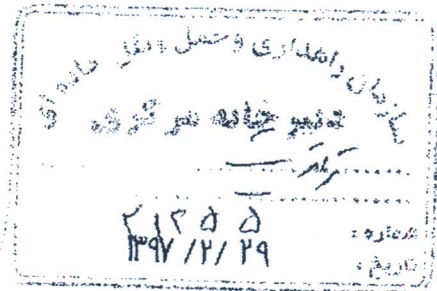 سازمان راهداری و حمل و نقل جاده ای
دبیر خانه مرکزی
شماره : ۲۱۲۵۵
تاریخ : ۱۳۹۷/۲/۲۹